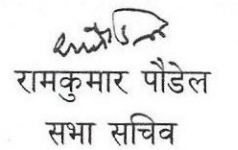 रामकुमार पौडेल
सभा सचिव